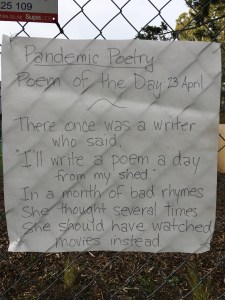 25 109
Pandemic Poetry
Poem of the Day 23 April
There once was a writer
who said,
"I'll write a poem a day
from my shed."
In a month of bad rhymes
She thought several times
She should have watched
movies instead